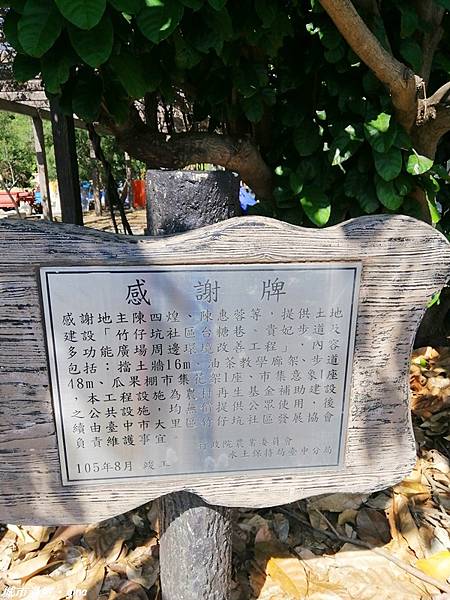 感謝牌
感謝地主陳四煌、陳惠蓉等，提供土地
建設「竹仔坑社區台糖巷、貴妃步道及
多功能廣場周邊環境改善工程」，內容
包括：擋土牆16m、油茶教學廊架、步道
48m、瓜果棚市集花架1座、市集意象1座
，本工程設施為農村再生基金補助建設
之公共設施，均無償提供公眾使用，後
續由臺中市大里區竹仔坑社區發展協會
負責維護事宜。
行政院農業委員會
水土保持局臺中分局
105年8月 竣工